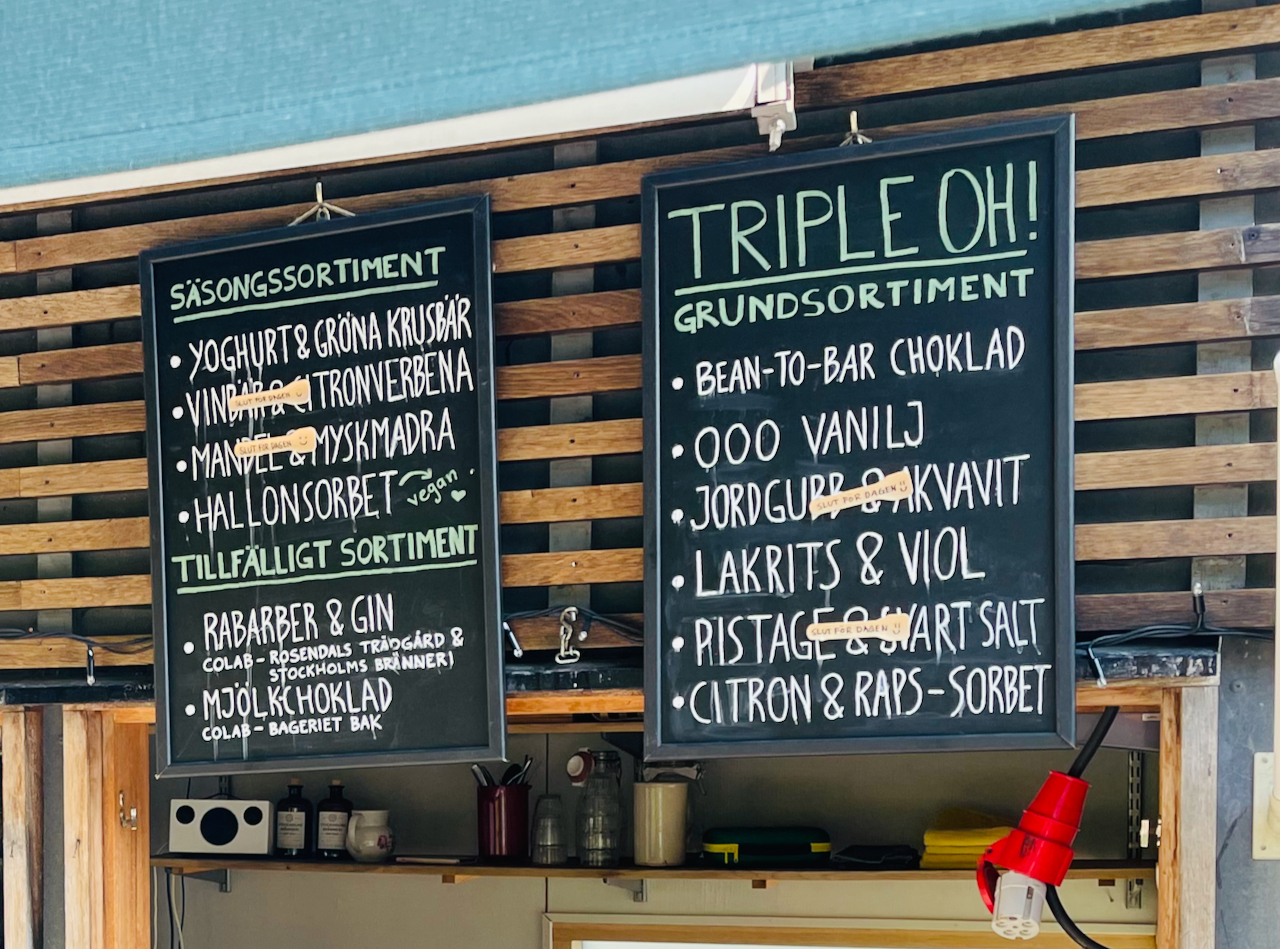 SÄSONGSSORTIMENT
• YOGHURT & GRÖNA KRUSBÄR
• VINBÄR & CITRONVERBENA
SLUT FÖR DAGEN
• MANDEL & MYSKMADRA
SLUT FÖR DAGEN
• HALLONSORBET
vegan
TILLFÄLLIGT SORTIMENT
• RABARBER & GIN
COLAB - ROSENDALS TRÄDGÅRD &
STOCKHOLMS BRÄNNERI
• MJÖLKCHOKLAD
COLAB - BAGERIET BAK
TRIPLE OH!
GRUNDSORTIMENT
• BEAN-TO-BAR CHOKLAD
• OOO VANILJ
• JORDGUBB & AKVAVIT
SLUT FÖR DAGEN
• LAKRITS & VIOL
• PISTAGE & SVART SALT
SLUT FÖR DAGEN
• CITRON & RAPS-SORBET